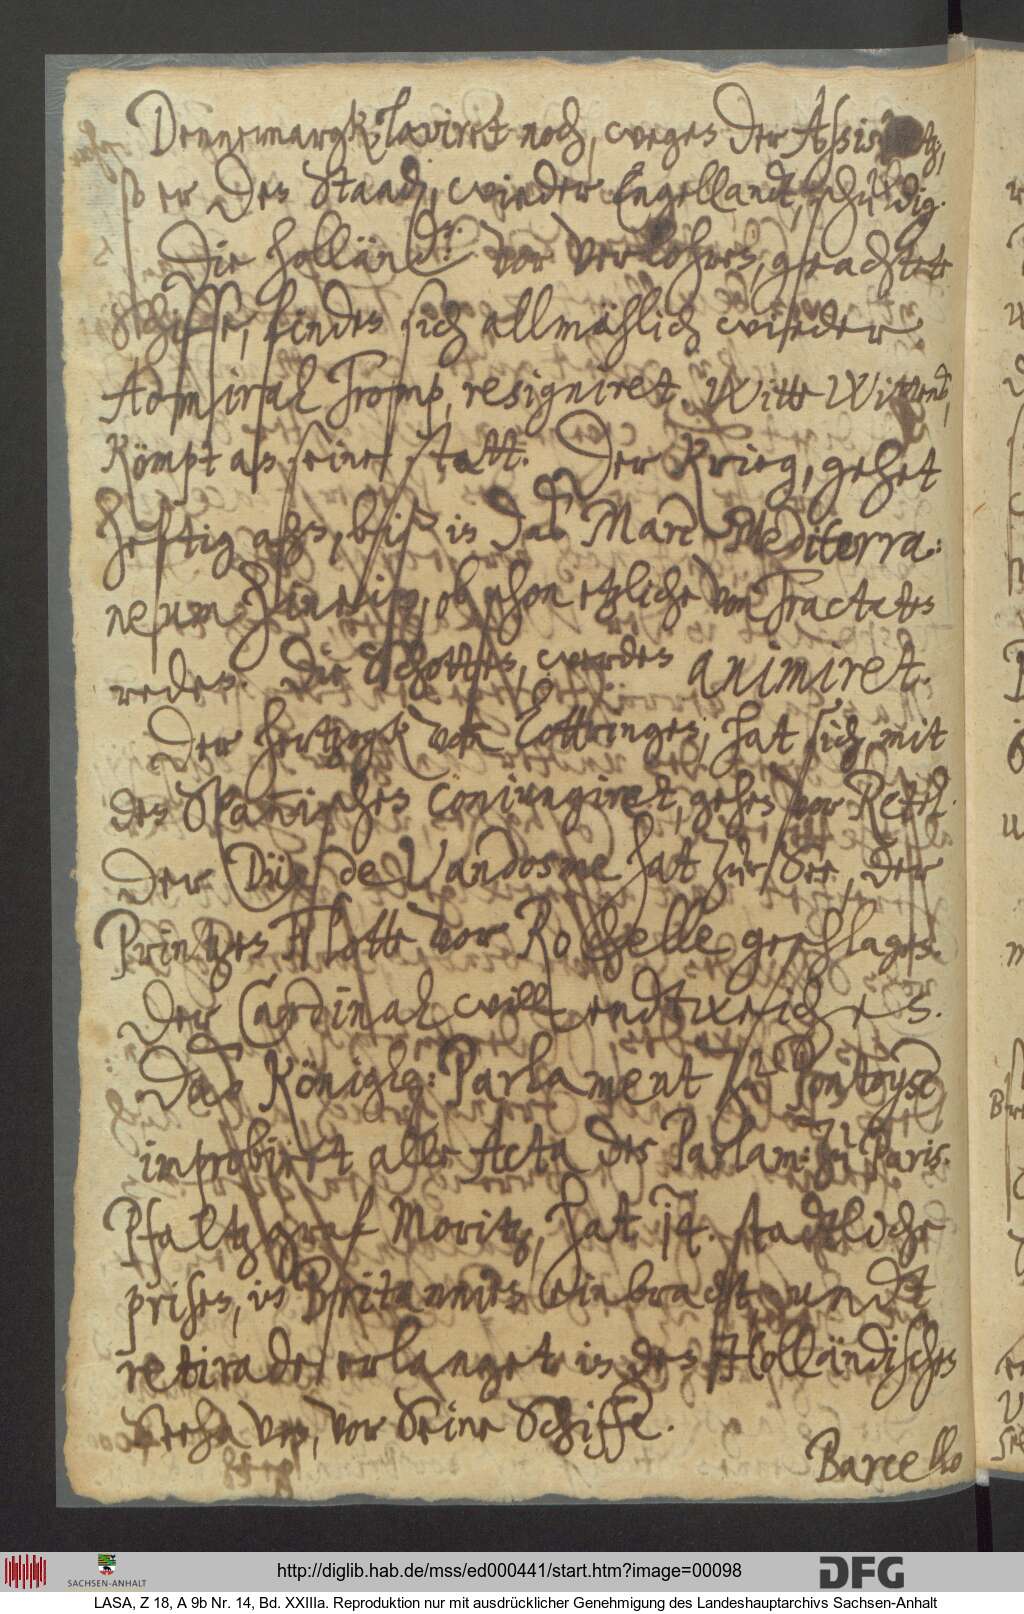 Dennemargk, laviret noch, wegen der Assistentz,
so er den Staadn, wieder Engellandt, schuldig.
Die holländ: vor verlohren, geachtete
Schiffe, finden sich allmählich wieder.
Admiral Tromp, resigniret. Witte Wittens,
kömpt an seine statt. Der Krieg, gehet
heftig ahn, biß in das Mare Mediterra:
neum hinein, ob schon etzliche von Tractaten
reden. Die Schotten, werden animiret.
Der Hertzogk von Lottringen, hat sich, mit
den Spanischen conjungiret, gehen vor Retel.
Der Düc de Vandosme hat zur See, der
Printzen Flotte vor Rochelle geschlagen.
Der Cardinal will endtweichen.
Das Königlich: Parlament zu Pontoyse
improbiret alle Acta des Parlam: zu Paris.
Pfaltzgraf Moritz, hat 14. stadtliche
prisen, in Britannien einbracht undt
retirade erlanget in den Holländischen
Seehaven, vor Seine Schiffe.
Barcello
http://diglib.hab.de/mss/ed000441/start.htm?image=00098
DFG
SACHSEN-ANHALT
LASA, Z 18, A 9b Nr. 14, Bd. XXIIIa. Reproduktion nur mit ausdrücklicher Genehmigung des Landeshauptarchivs Sachsen-Anhalt